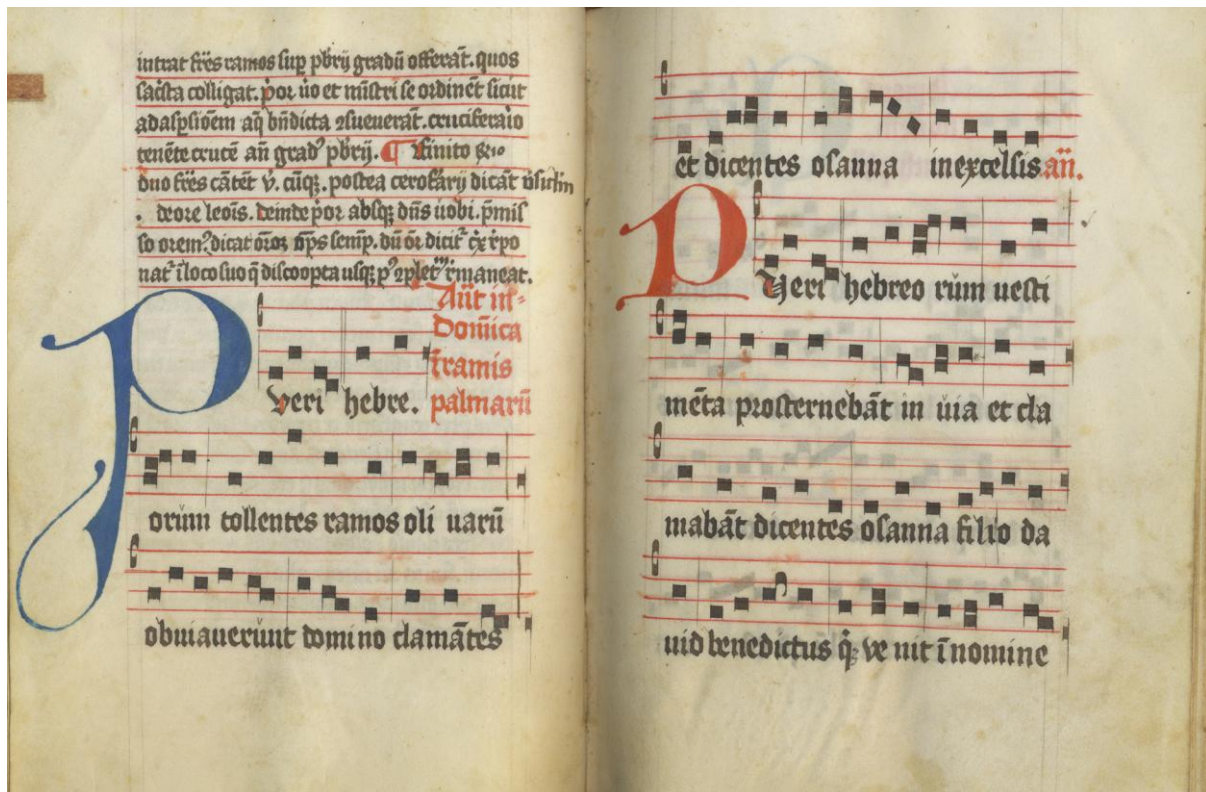 intrāt frēs ramos suꝑ pb̄rij gradū offerāt. quos
sac̄sta colligat. p̄or ūo et mīstri se ordinēt sicut
ad asp̱sioēm aq̄ bn̄dicta ↄsueuerāt. cruciferario
tenēte crucē añ grad᷒ pb̄rij. ¶ Finito
duo frēs cātēt v̄. cūqꝫ. postea ceroferarij dicāt
. de ore leōis. deinde p̄or absqꝫ dn̄s uobi. p̄mis
so orem᷒. dicat ōroꝫ op̄s semp̱. dū ōr dicit᷑
nat᷑ ī loco suo usqꝫ maneat.
Añt in
Domīca
ī ramis
palmarū
Pveri hebre.
orum tollentes ramos oli uarū
obuiauerunt domi no clamātes
et dicentes osanna in excelsis añ.
PVeri hebreo rum uesti
mēta prosternebāt in uia et cla
mabāt dicentes osanna filio da
uid benedictus q̇ ve nit ī nomine